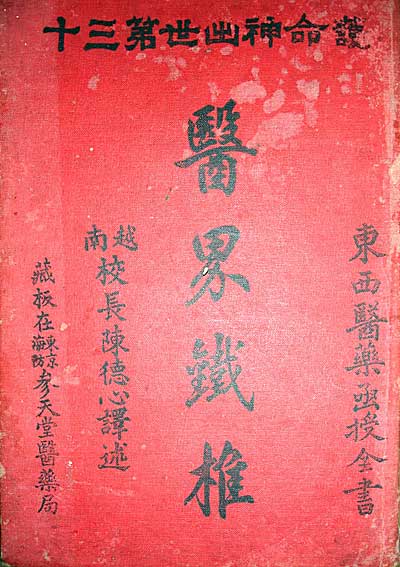 護命神出世第三十
東西醫藥函授全書
醫界鐵椎
越南校長陳德心譯述
藏板在東京海防參天堂醫藥局